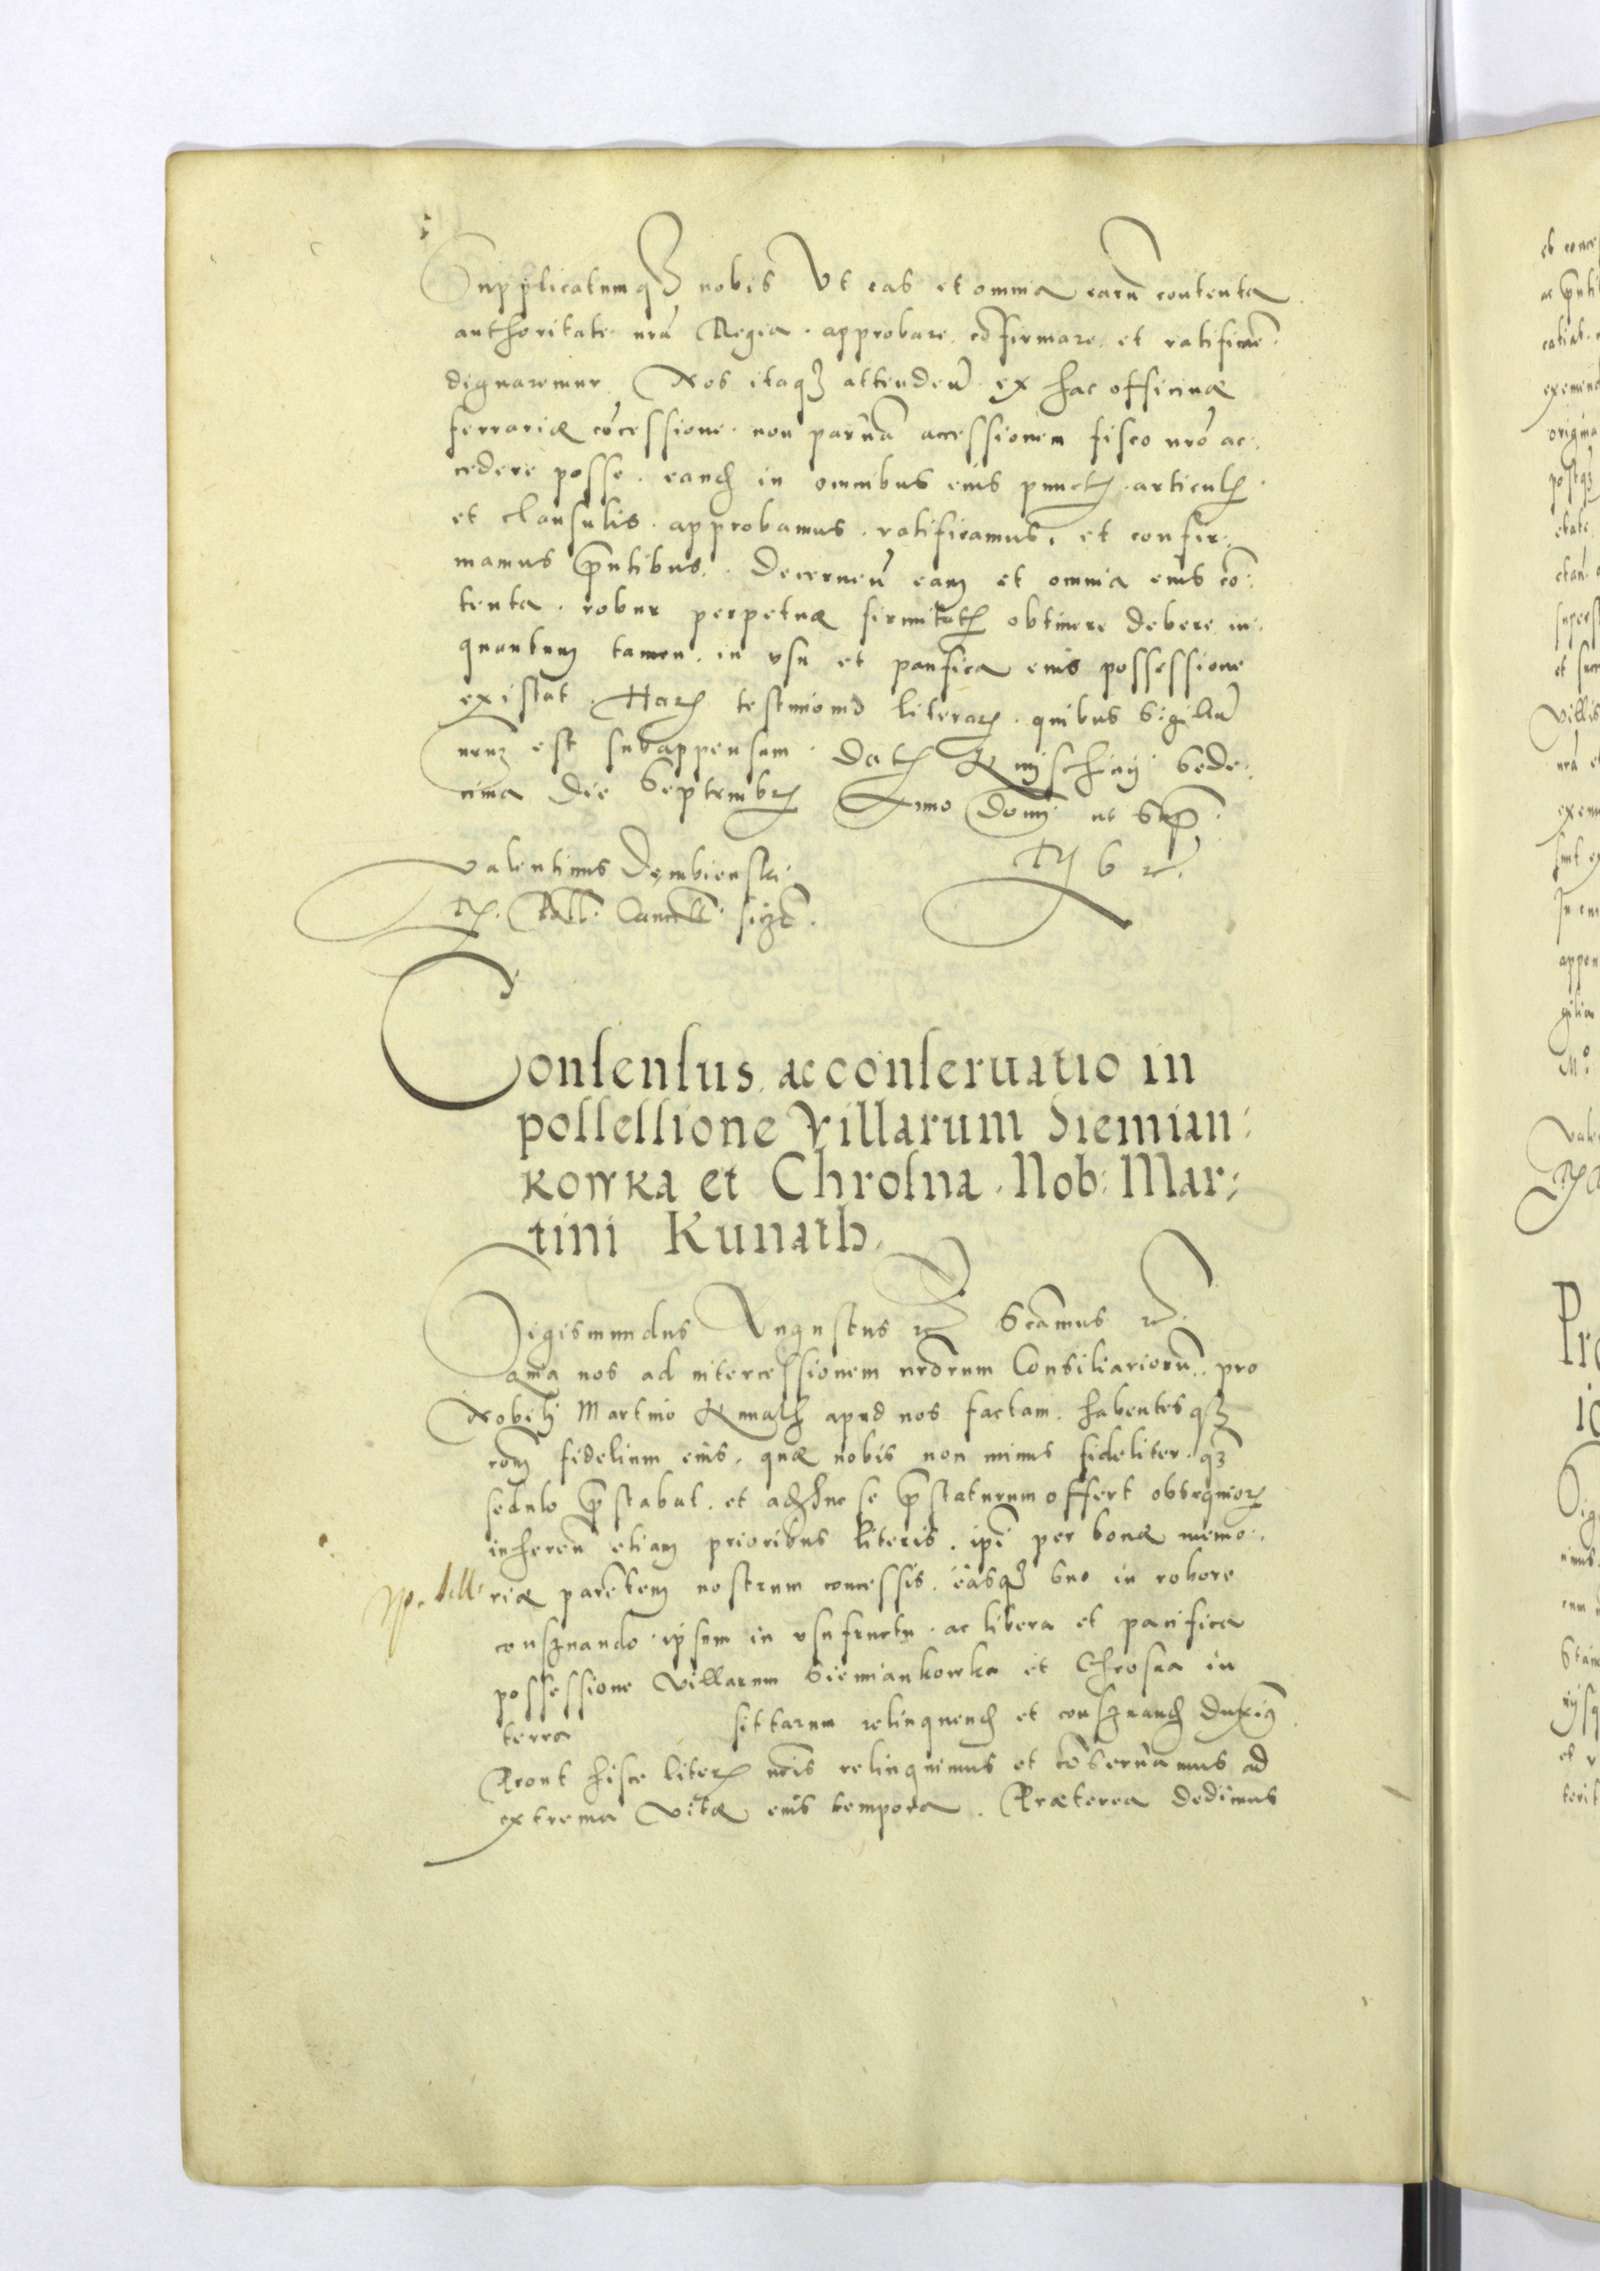 Supplicatumq₃ nobis Vt eas et omnia earū contenta
authoritate nrā Regia approbare cōfirmare et ratificare
dignaremur. Nos itaq₃ attendeñ ex hac officinæ
ferrariæ cōcessione non paruā accessionem fisco nrō ac:
cedere posse. eand in omnibus eius punctꝭ articulꝭ
et clausulis approbamus ratificamus, et confir:
mamus p̄ntibus. Decerneñ eam et omnia eius cō:
tenta robur perpetuæ firmitatꝭ obtinere debere in:
quantum tamen in vsu et pacifica eius possessione
existat. Harꝝ testimonio literarꝝ quibus Sigillū
nrum est subappensum. Datꝭ Knijschinij Vnde:
cima die Septembrꝭ Anno Domi ut Sup̄
Valentinus Dembienski
R. Poll. Cancell. sszt. R s r.
Consensus ac conseruatio in
possessione Villarum Siemian:
kowka et Chrosna Nob: Mar:
tini Kunath.
Sigismundus Augustus rc Scāmus rc.
Quia nos ad intercessionem nrōrum Consiliariorū pro
Nobili Martino Kunath apud nos factam habentesq₃
rōnem fidelium eius, quæ nobis non minus fideliter q₃
sedulo p̄stabat. et adhuc se p̄staturum offert obsequiorꝝ
inhereñ etiam prioribus literis, ip̄i per bonæ memo:
riæ parentem nostrum concessis, easq₃ suo in robore
conseruando ipsum in vsufructu ac libera et pacifica
possessione Villarum Siemiankowka et Chrosna in
terra sittarum relinquend et conseruand duxim9
Prout hisce literꝭ nrīs relinquimus et cōseruamus ad
extrema Vitæ eius tempora. Præterea dedimus